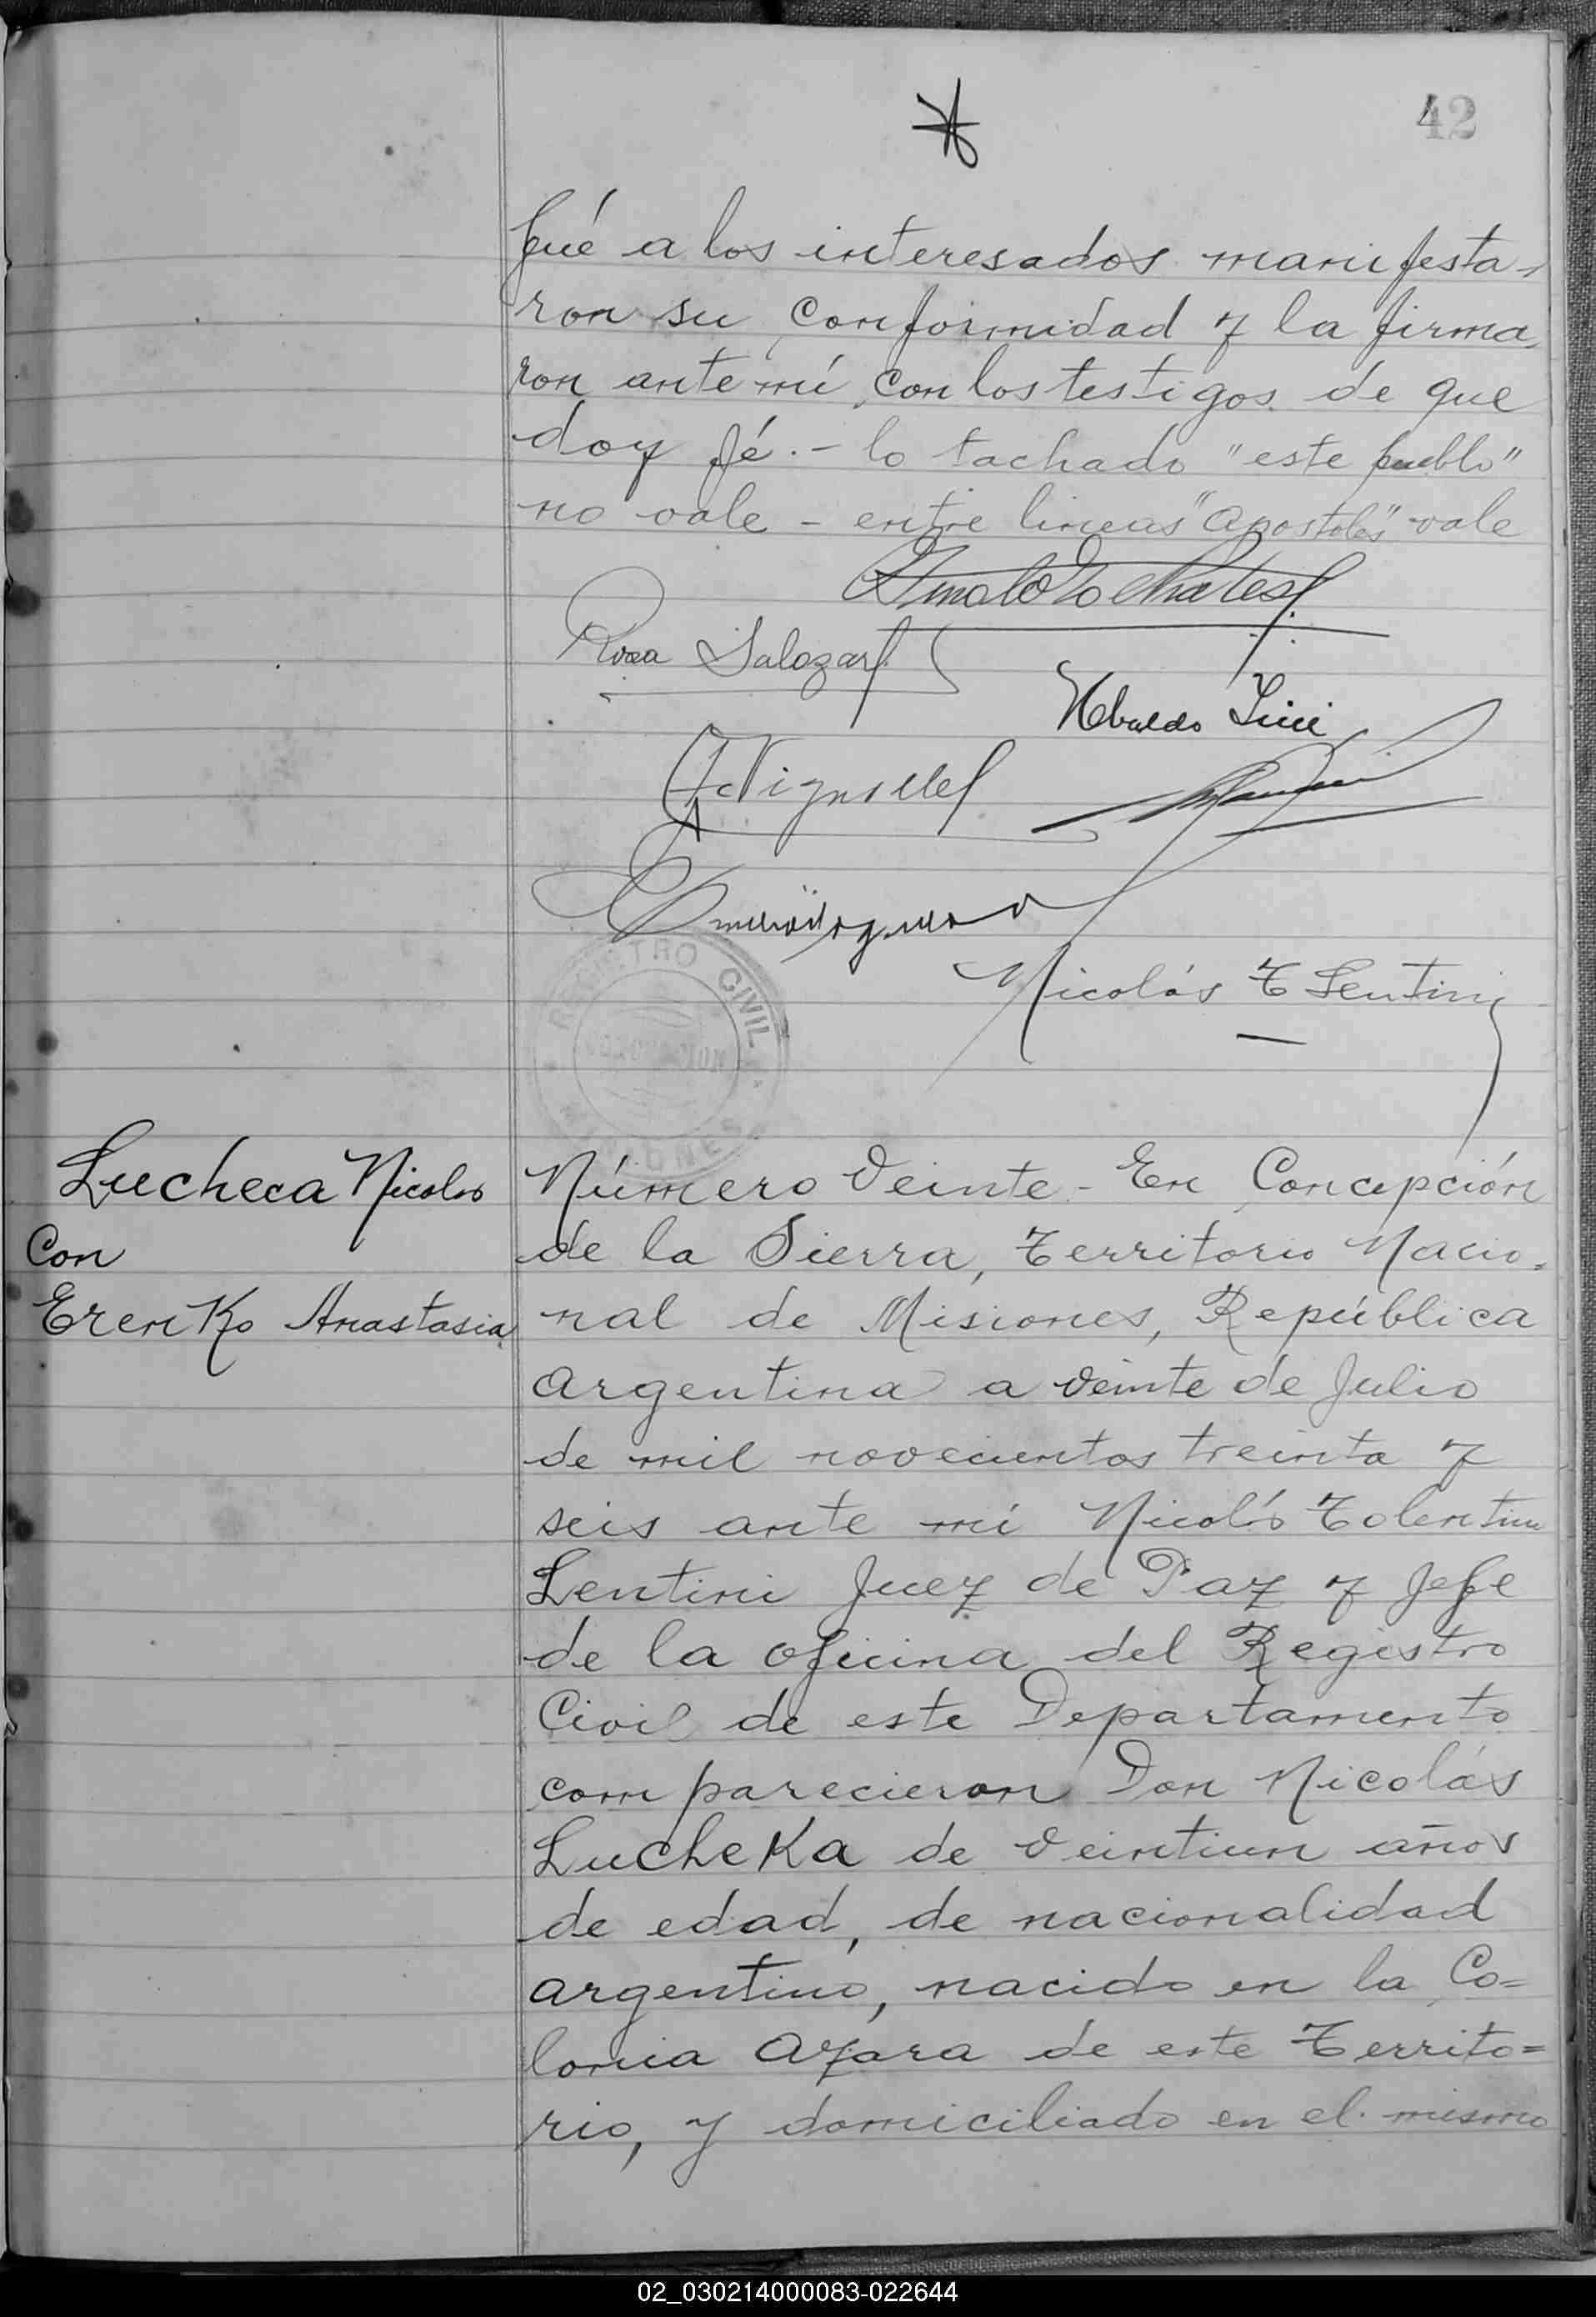 42
fué a los interesados manifesta-
ron su conformidad y la firma-
ron ante mí con los testigos de que
doy fé.- lo tachado "este pueblo"
no vale - entre lineas "Apostoles" vale
Rosa Salazar
Ubaldo
Nicolás T Lentini
REGISTRO CIVIL
MISIONES
Lucheca Nicolas
Con
Erenko Anastasia
Número Veinte - En Concepción
de la Sierra, Territorio Nacio-
nal de Misiones, República
Argentina a veinte de Julio
de mil novecientos treinta y
seis ante mí Nicolás Tolentino
Lentini Juez de Paz y Jefe
de la oficina del Registro
Civil de este Departamento
comparecieron Don Nicolás
Lucheka de veintiun años
de edad, de nacionalidad
argentino, nacido en la Co=
lonia Azara de este Territo=
rio, y domiciliado en el mismo
02_030214000083-022644